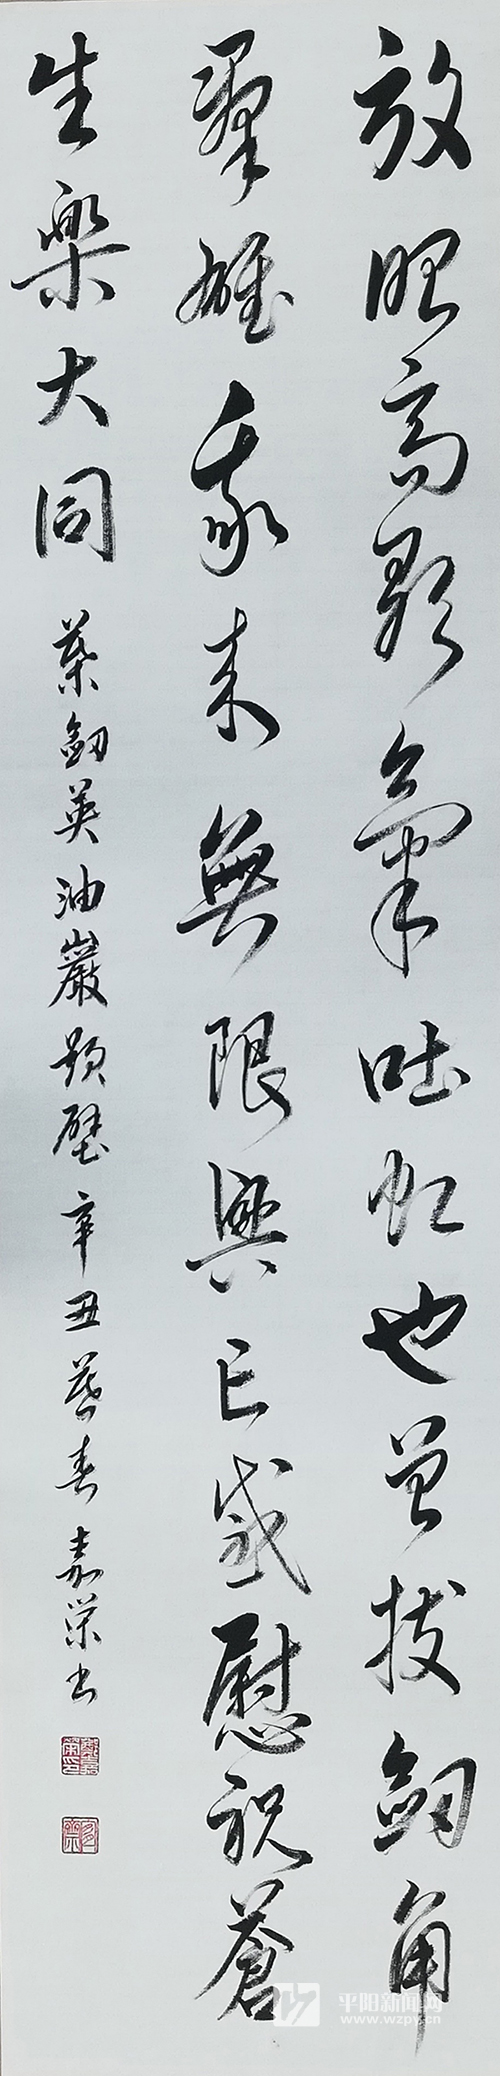 放眼高歌氣吐虹也曾拔劍角
羣雄我來無限興亡感慰祝蒼
生樂大同
葉劍英油巖題壁辛丑暮春嘉榮書
平阳新闻网
www.wzpy.cn